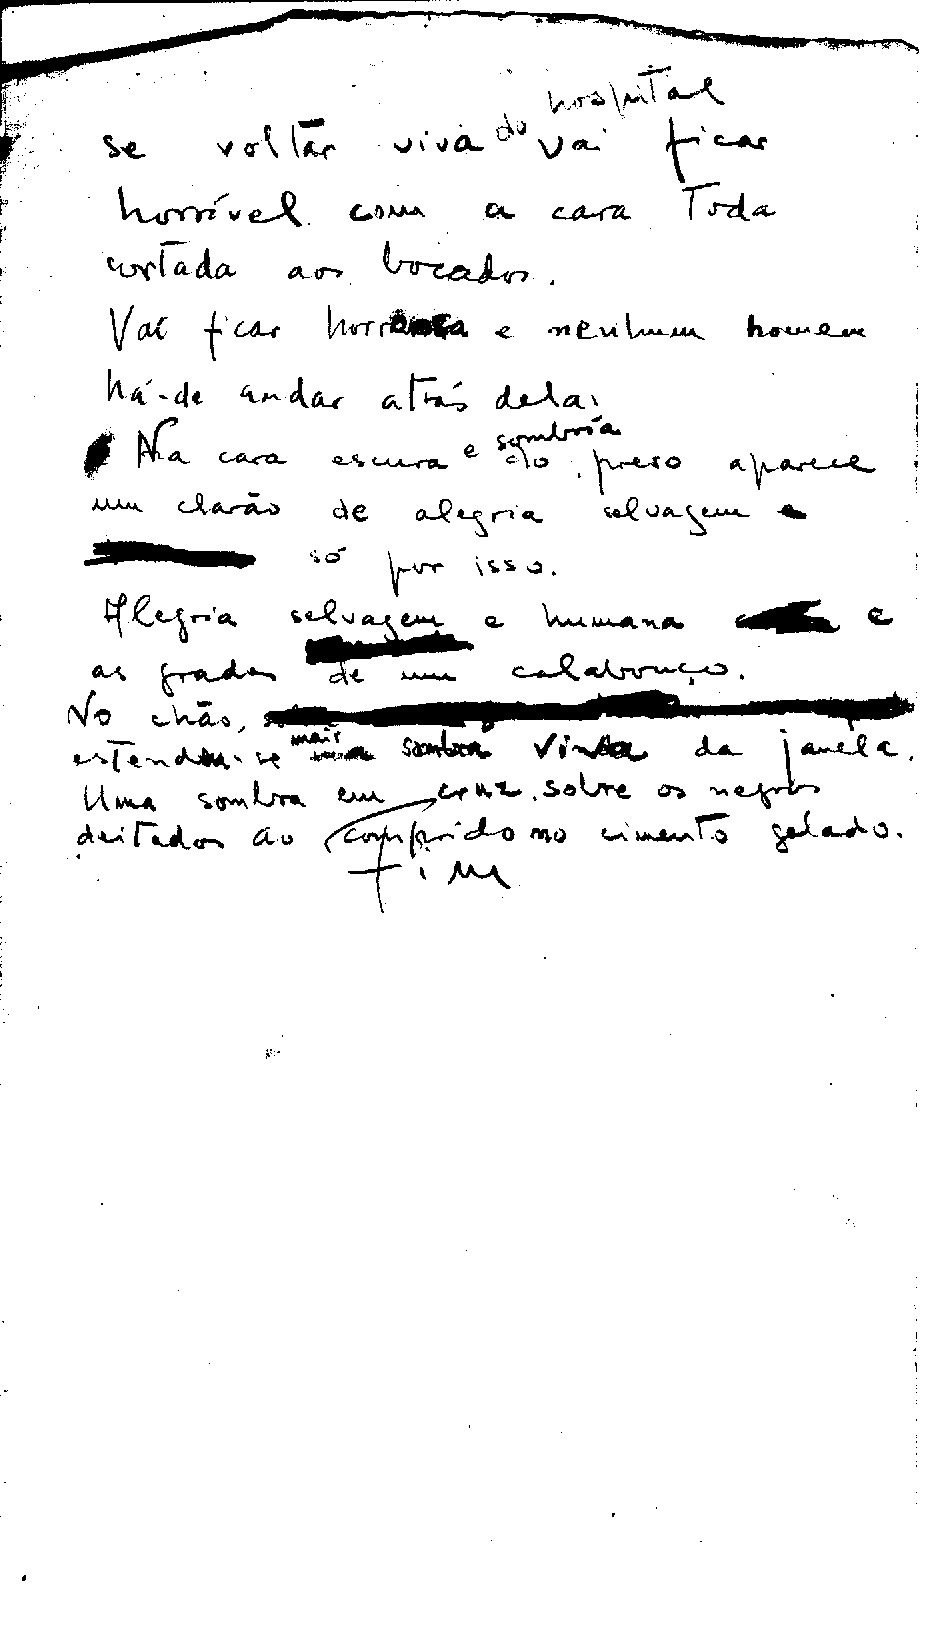 se voltar viva do hospital vai ficar
horrível com a cara toda
cortada aos bocados.
Vai ficar e nenhum homem
há-de andar atrás dela.
Na cara escura e sombria do preso aparece
um clarão de alegria selvagem
só por isso.
Alegria selvagem e humana e
as grades de um calabouço.
No chão,
estende-se mais sombra vinda da janela.
Uma sombra em cruz sobre os negros
deitados ao comprido no cimento gelado.
Fim